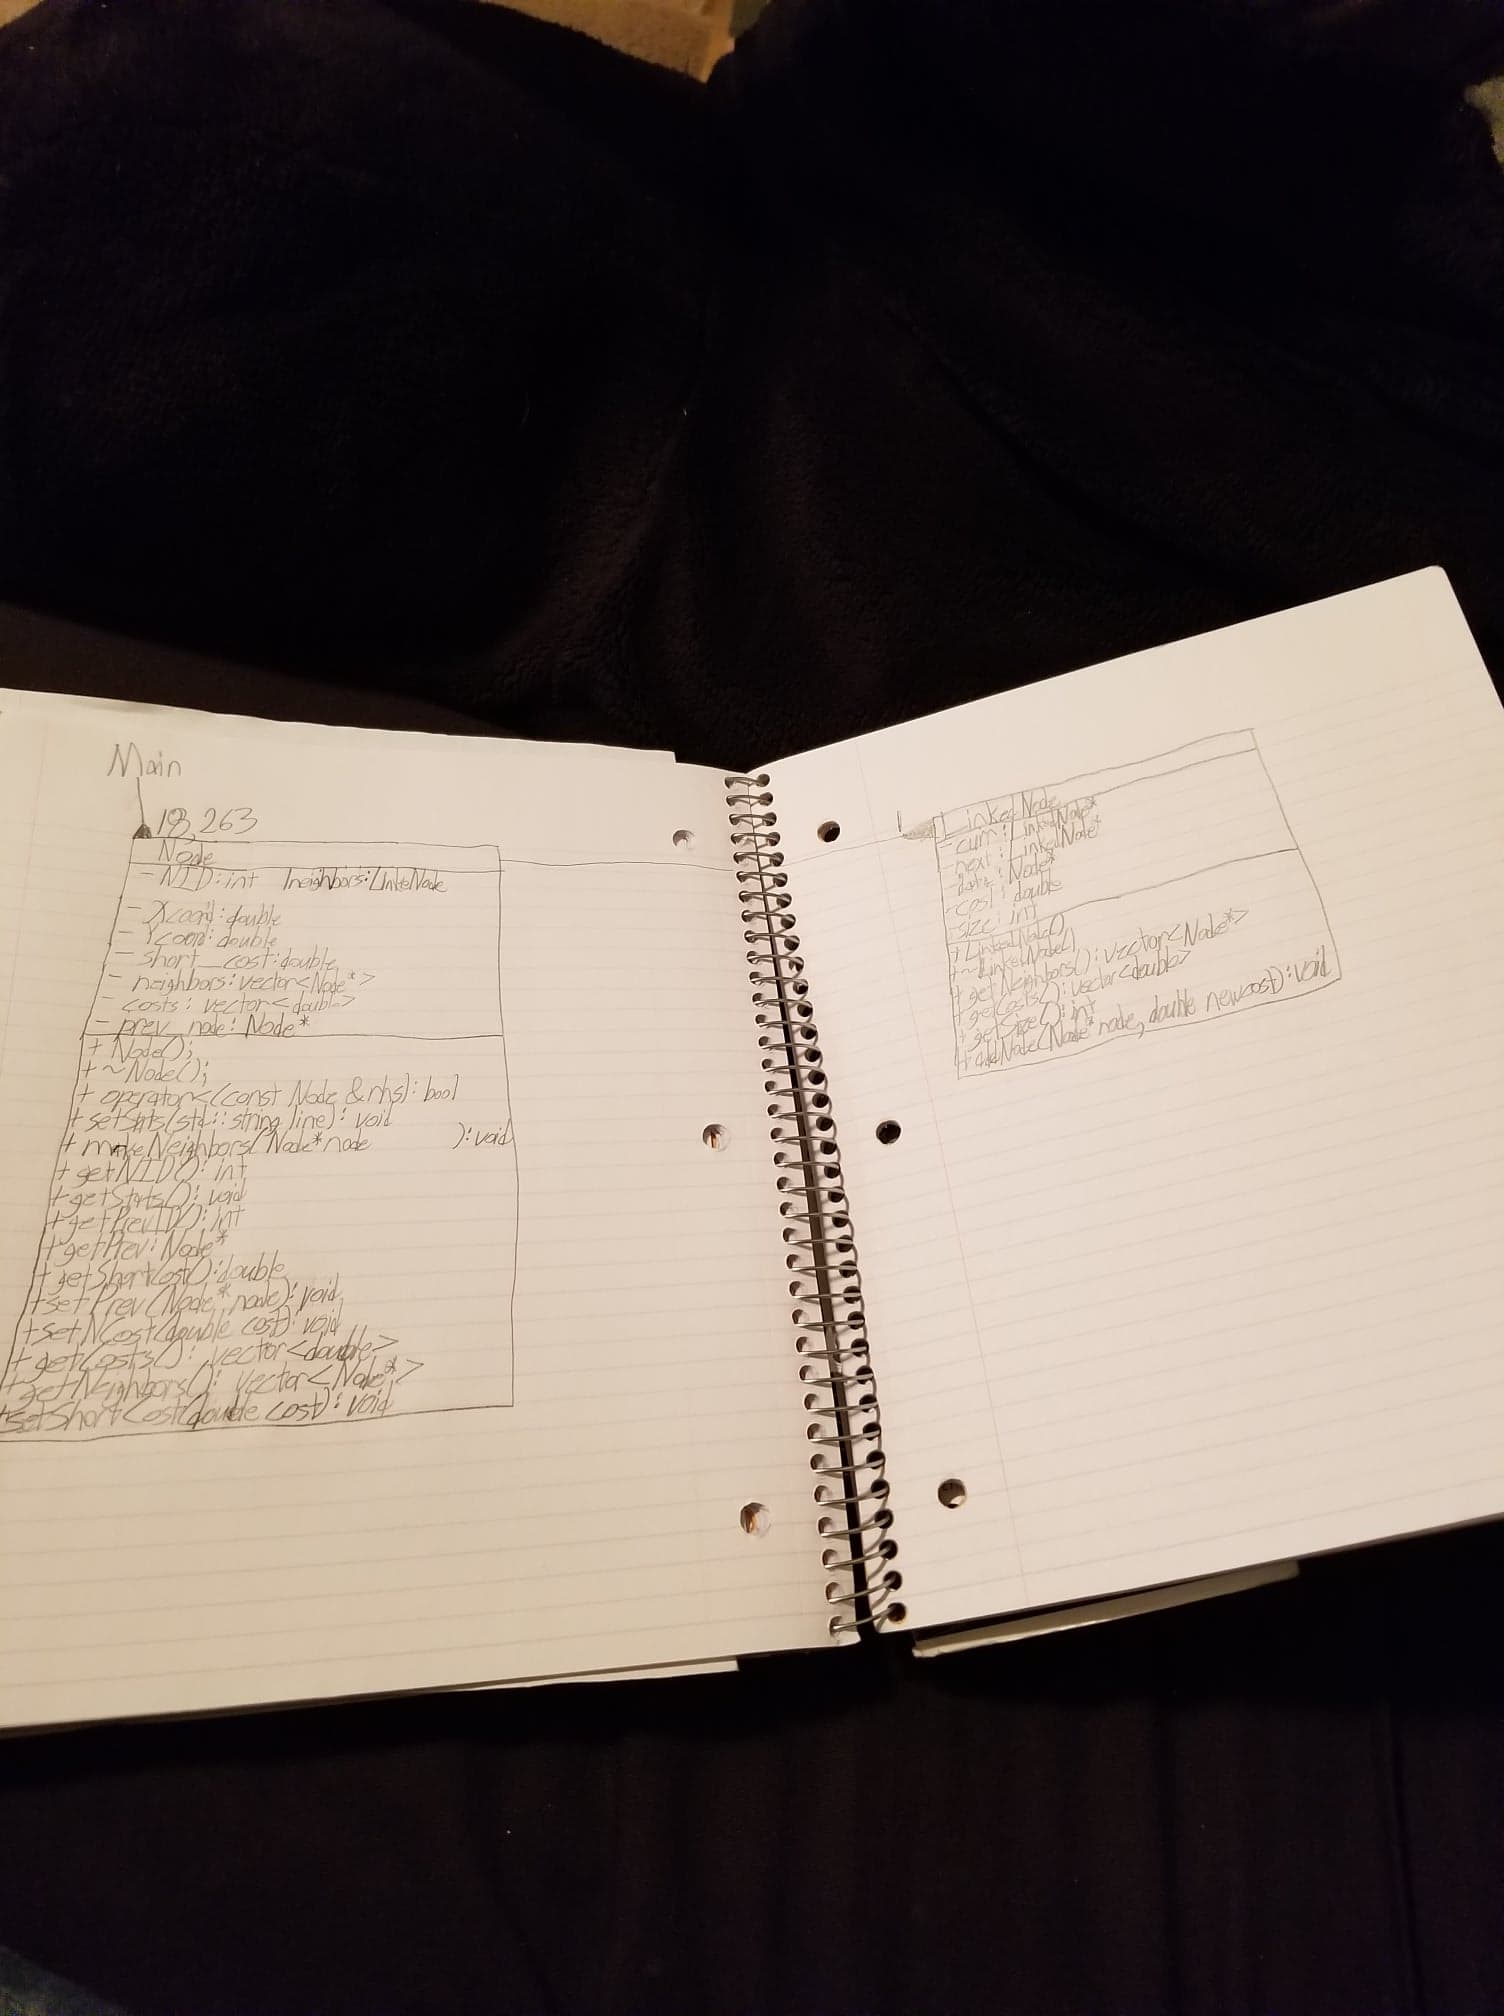 Main
18,263
Node
- NID: int neighbors: LinkeNode
- Xcoord: double
- Ycoord: double
- short_cost: double
- neighbors: vector<Node*>
- costs: vector<double>
- prev_node: Node*
+ Node();
+ ~Node();
+ operator<(const Node &rhs): bool
+ setStats(std::string line): void
+ makeNeighbors(Node* node ): void
+ getNID(): int
+ getStats(): void
+ getPrevID(): int
+ getPrev: Node*
+ getShortCost(): double
+ setPrev(Node* node): void
+ setNCost(double cost): void
+ getCosts(): vector<double>
+ getNeighbors(): vector<Node*>
+ setShortCost(double cost): void
1
Linked Node
- curr: LinkedNode*
- next: LinkedNode*
- data: Node*
- cost: double
- size: int
+ LinkedNode()
+ ~LinkedNode()
+ getNeighbors(): vector<Node*>
+ getCosts(): vector<double>
+ getSize(): int
+ addNode(Node* node, double newcost): void